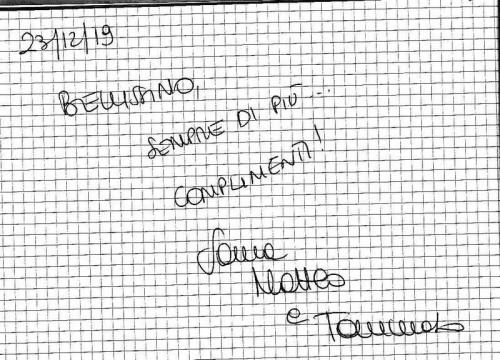 23/12/19
BELLISSIMO,
SEMPRE DI PIÙ...
COMPLIMENTI!
Matteo
e Tommaso